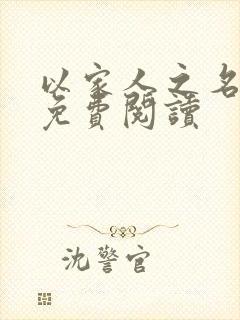 以家人之名
免費閱讀
沈警官